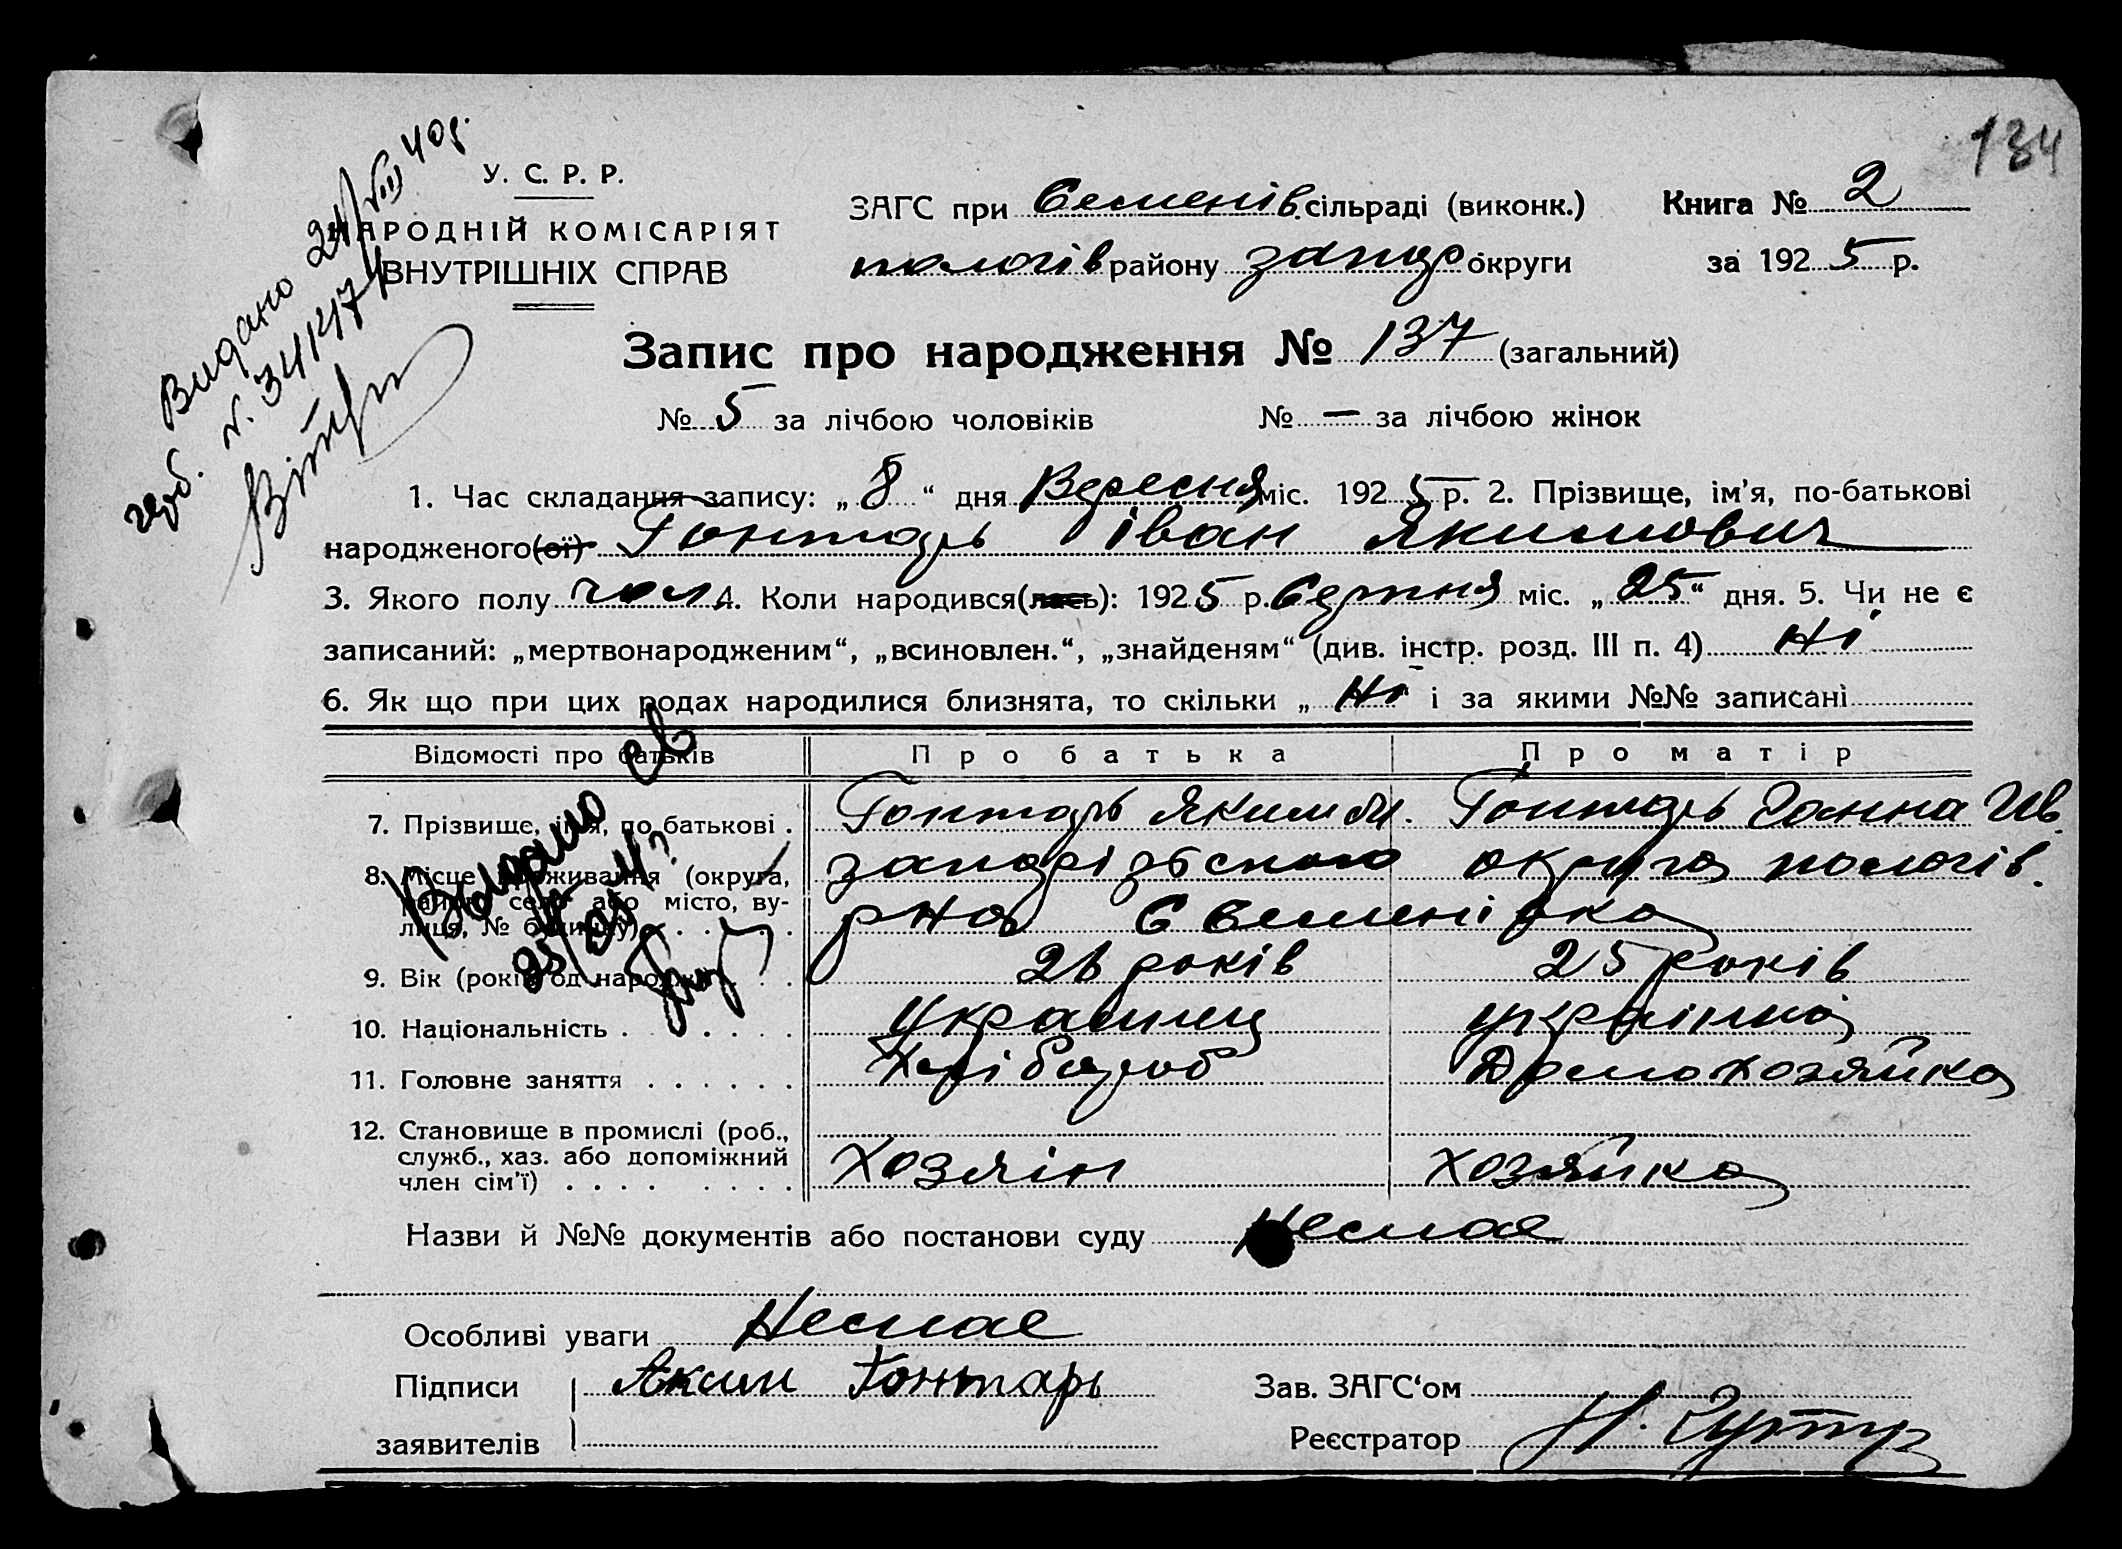 134
У. С. Р. Р.
НАРОДНІЙ КОМІСАРІЯТ
ВНУТРІШНІХ СПРАВ
ЗАГС при Семенів. сільраді (виконк.) Книга № 2
пологів району запор округи за 1925 р.
Видано 21/VII 40р.
№. 341474
Запис про народження № 137 (загальний)
№ 5 за лічбою чоловіків № — за лічбою жінок
1. Час складання запису: „8“ дня Вересня міс. 1925 р. 2. Прізвище, ім'я, по-батькові
народженого(ої) Гонтарь Іван Якимович
3. Якого полу чол 4. Коли народився(лась): 1925 р. Серпня міс. „25“ дня. 5. Чи не є
записаний: „мертвонародженим“, „всиновлен.“, „знайденям“ (див. інстр. розд. III п. 4) Ні
6. Як що при цих родах народилися близнята, то скільки „ Ні і за якими №№ записані
Відомості про батьків Про батька Про матір
7. Прізвище, ім'я, по батькові . Гонтарь Яким М. Гонтарь Ганна Ів.
8. Місце проживання (округа, запорізьскоі округа пологів.
район, село або місто, ву-
лиця, № будинку) . . . . рна С Семенівка
Видано св
9. Вік (років од народж.) . . . 26 років 25 років
10. Національність . . . . . . Украинец українка
11. Головне заняття . . . . . . Хлібороб Домохозяйка
12. Становище в промислі (роб.,
служб., хаз. або допоміжний
член сім'ї) . . . . . . . . Хозяін хозяйка
Назви й №№ документів або постанови суду Немає
Особливі уваги Немає
Підписи Аким Гонтарь Зав. ЗАГС‘ом
заявителів Реєстратор